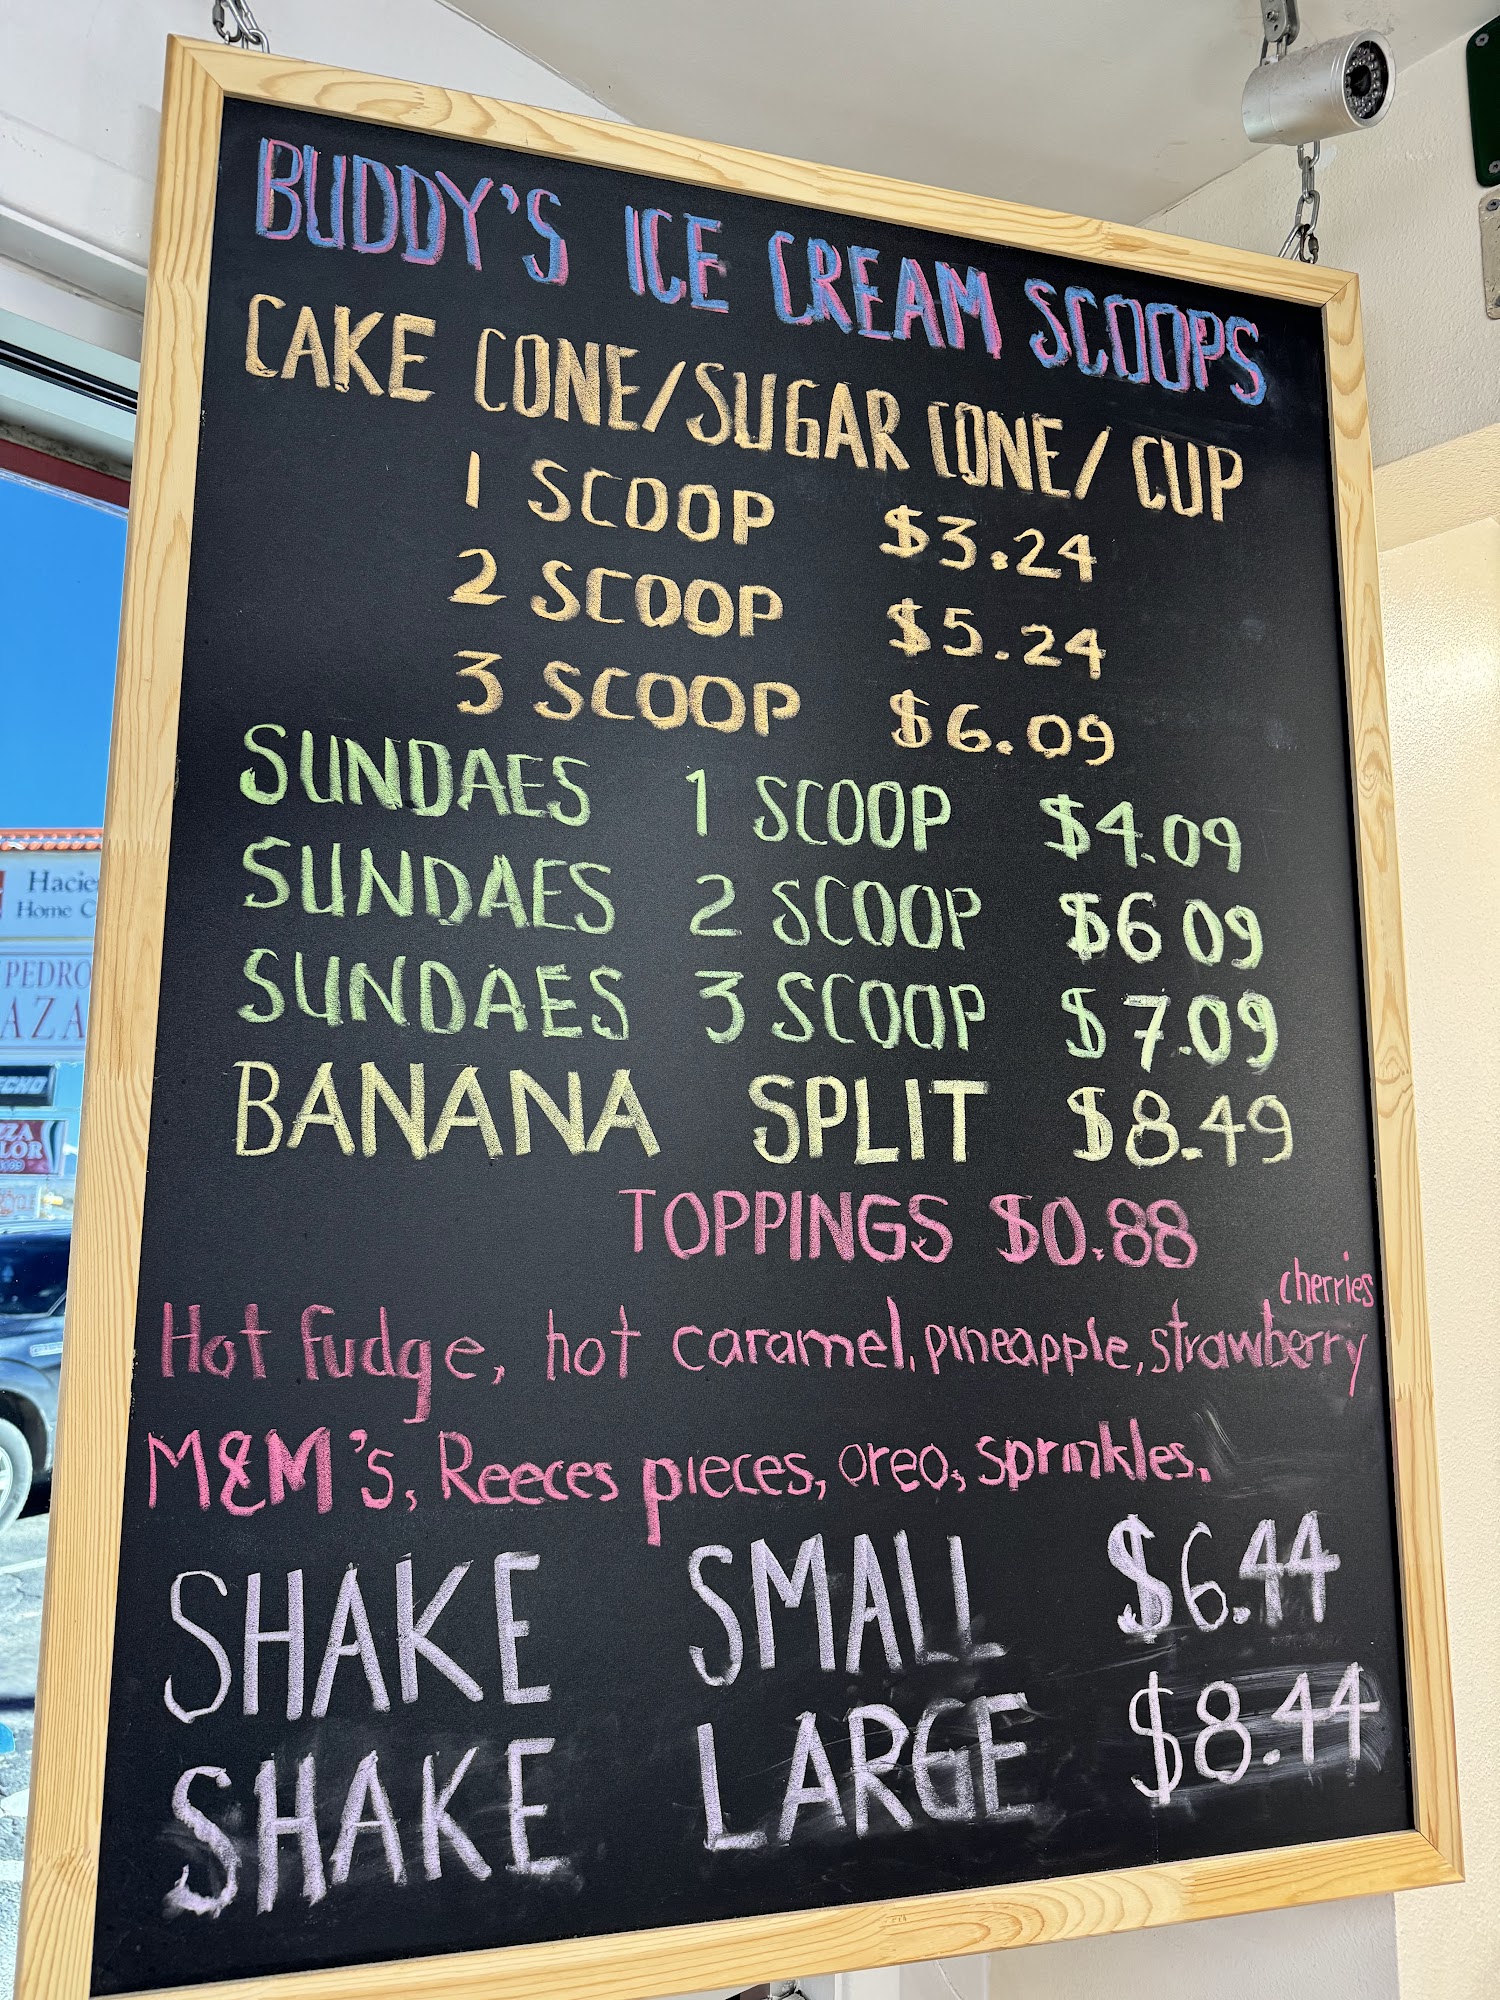 BUDDY'S ICE CREAM SCOOPS
CAKE CONE/SUGAR CONE/ CUP
1 SCOOP $3.24
2 SCOOP $5.24
3 SCOOP $6.09
SUNDAES 1 SCOOP $4.09
SUNDAES 2 SCOOP $6 09
SUNDAES 3 SCOOP $7.09
BANANA SPLIT $8.49
TOPPINGS $0.88
cherries
Hot fudge, hot caramel, pineapple, strawberry
M&M's, Reeces pieces, oreo, sprinkles.
SHAKE SMALL $6.44
SHAKE LARGE $8.44
Hacie
Home C
PEDRO
AZA
ECHO
ZZA
LOR